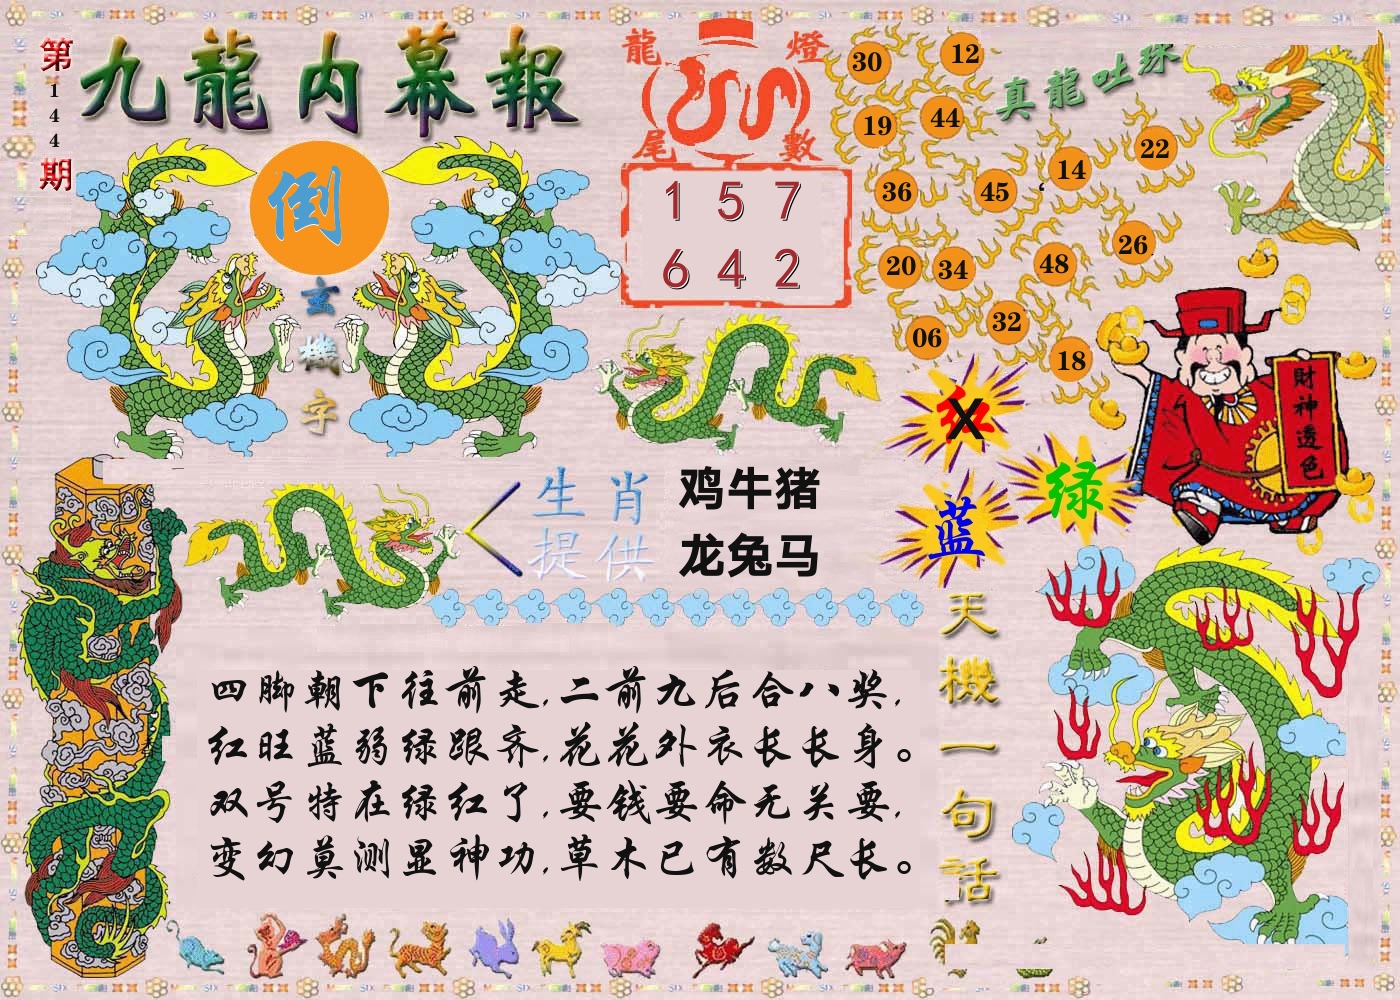 第144期
九龍内幕報
倒
玄機字
龍燈
尾數
1 5 7
6 4 2
真龍吐珠
30
12
19
44
14
22
36
45
20
34
48
26
06
32
18
红
X
绿
蓝
財神透色
生肖提供
鸡牛猪
龙兔马
天機一句話
四脚朝下往前走,二前九后合八奖,
红旺蓝弱绿跟齐,花花外衣长长身。
双号特在绿红了,要钱要命无关要,
变幻莫测显神功,草木已有数尺长。